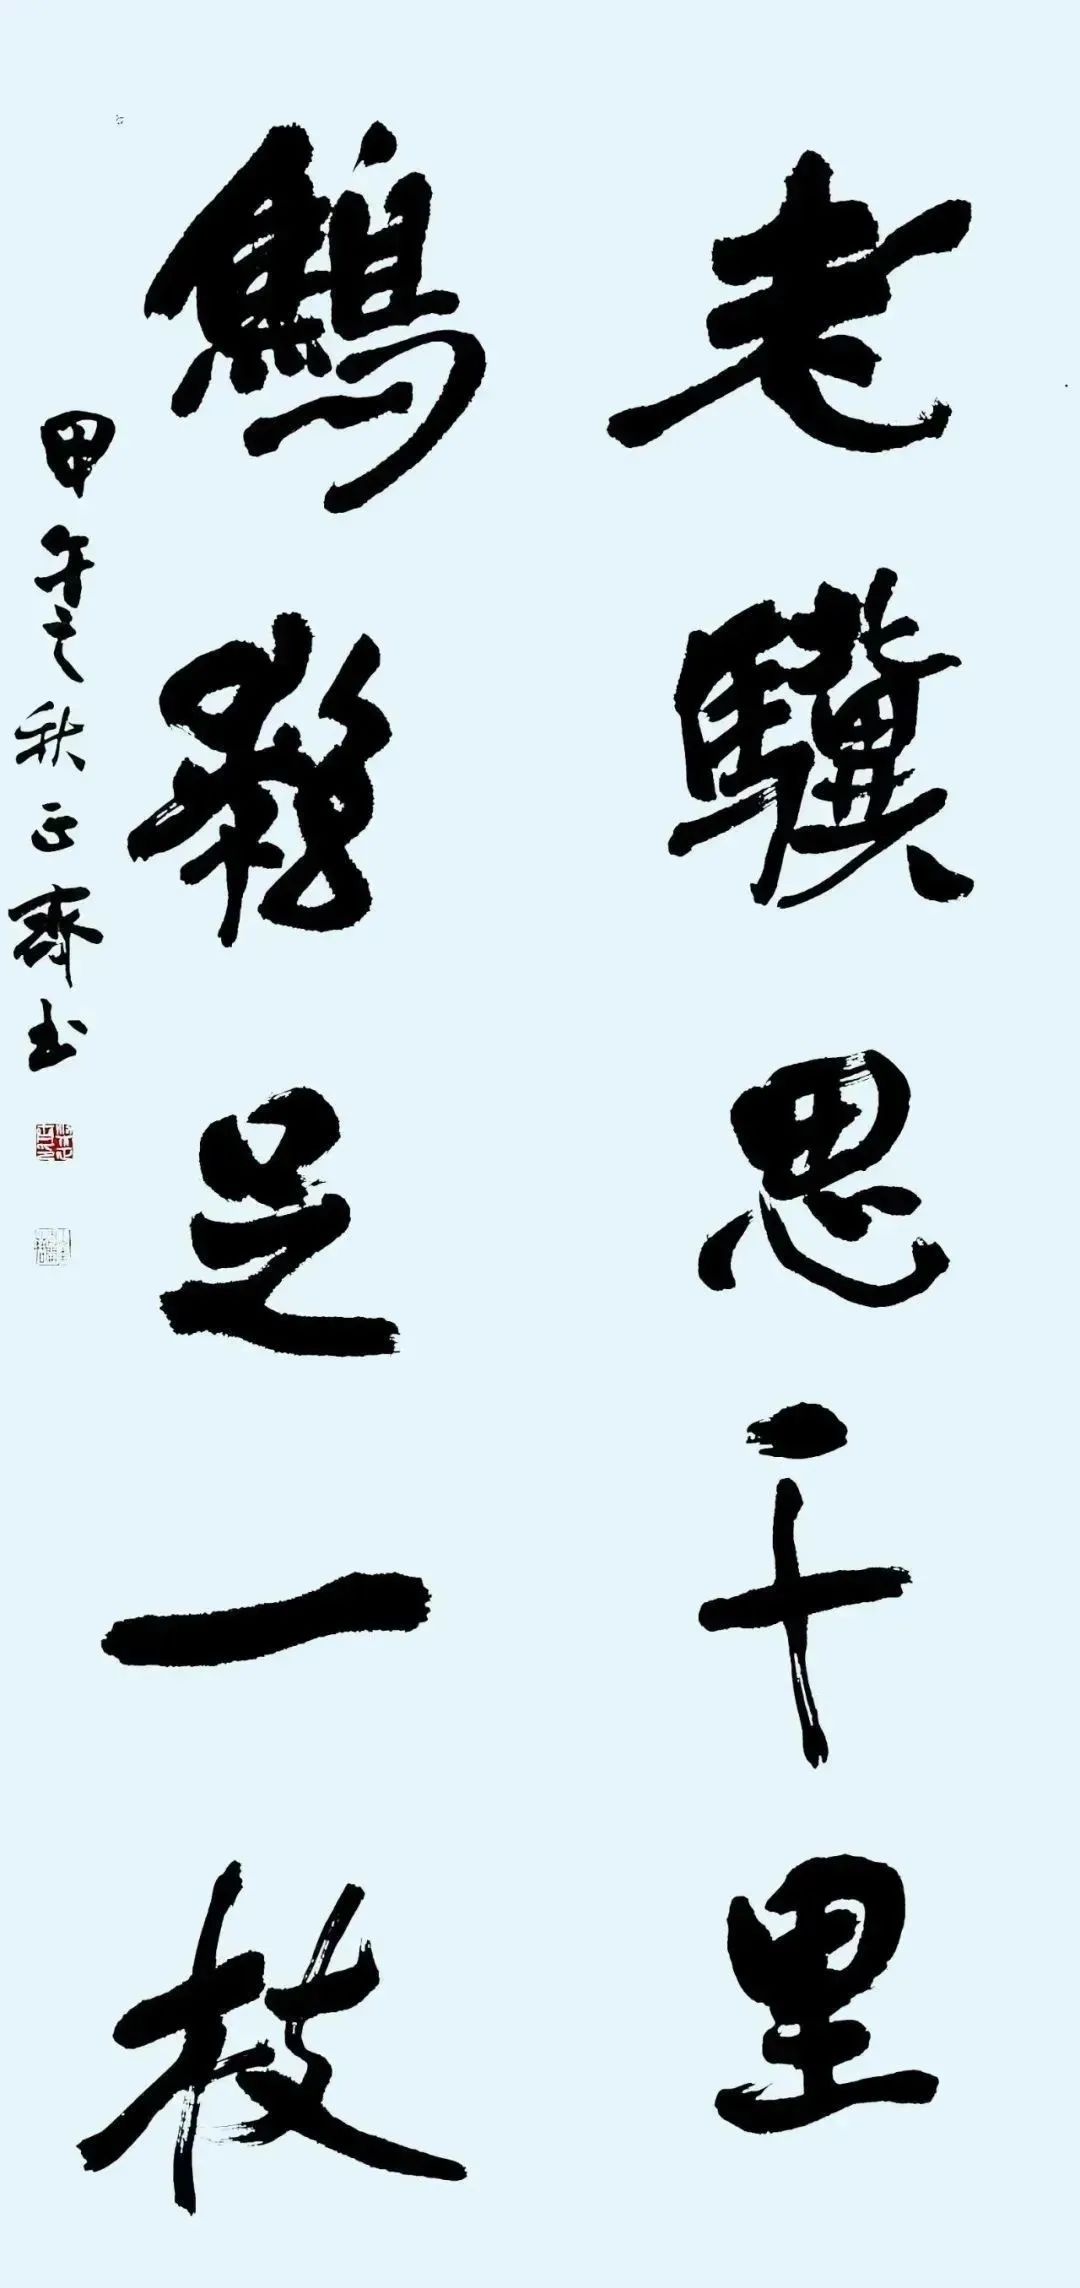 老驥思千里
鷦鷯足一枝
甲午之秋正齋书